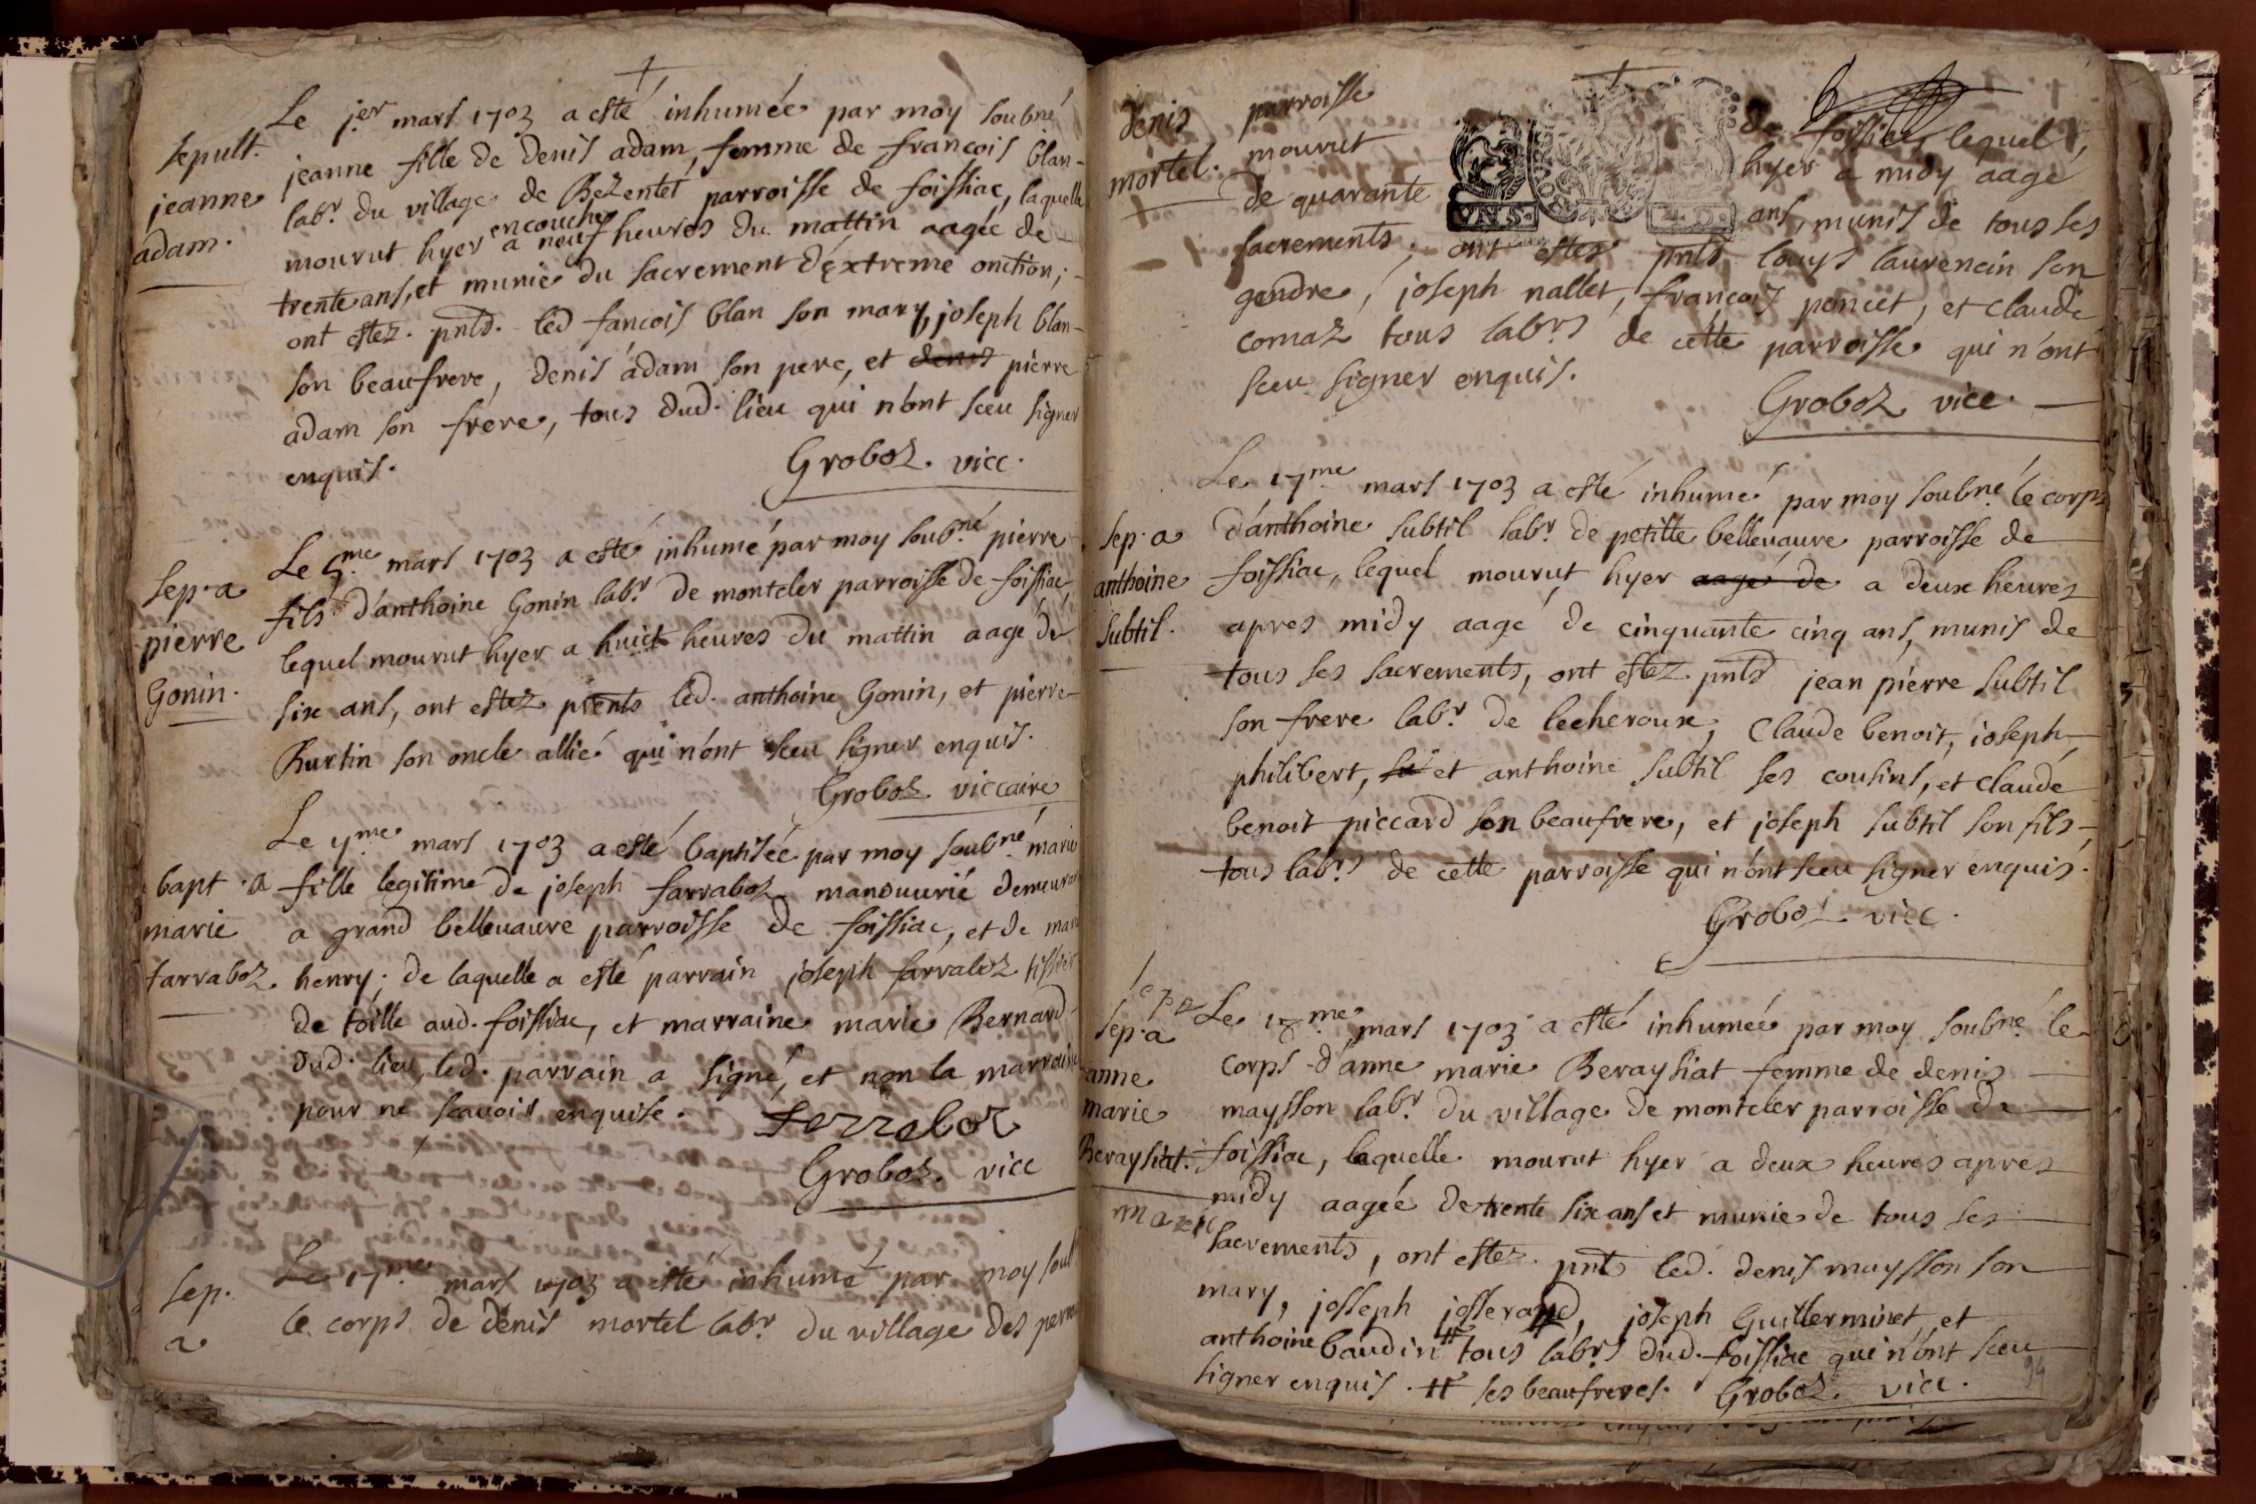 Sepult.
jeanne
adam.
Le jer mars 1703 a esté inhumée par moy soubné
jeanne fille de denis adam, femme de francois blan-
labr. du village de Bezentet parroisse de foissiac, laquelle
mourut hyer encouche a neuf heures du mattin aagée de
trente ans, et munie du sacrement d'extreme onction;
ont estez. pnts. led fancois blan son mary, joseph blan-
son beaufrere, denis adam son pere, et denis pierre
adam son frere, tous dud. lieu qui n'ont sceu signer
enquis.
Groboz. vicc.
Sep. a
pierre
Gonin.
Le 5me mars 1703 a esté inhumé par moy soub.né pierre
fils d'anthoine Gonin labr. de montcler parroisse de foissiac,
lequel mourut hyer a huict heures du mattin aagé de
six ans, ont estéz pients led. anthoine Gonin, et pierre
Burtin son oncle allié qui n'ont sceu signer enquis.
Groboz viccaire
bapt. a
marie
farraboz.
Le 7me mars 1703 a esté baptisée par moy soubné marie
fille legitime de joseph farraboz manouurié demeurant
a grand belleuaure parroisse de foissiac, et de marie
henry; de laquelle a esté parrain joseph farraboz tissier
de toille aud. foissiac, et marraine marie Bernard
dud. lieu, led. parrain a signé, et non la marraine
pour ne scauois enquise.
ferreboz
Groboz. vicc
Sep.
a
Le 17me mars 1703 a esté inhumé par moy soub
le corps de denis mortel labr du village des
denis
mortel.
parroisse de foissiac lequel,
mourut hyer a midy aagé
de quarante ans, munis de tous ses
VN S. 4. D.
sacrements. ont estez pnts louys laurencin son
gendre, joseph nallet, francois poncet, et claude
comaz tous labrs de cette parroisse qui n'ont
sceu signer enquis.
Groboz vicc.
Sep. a
anthoine
Subtil.
Le 17me mars 1703 a esté inhumé par moy soubné le corps
d'anthoine subtil labr. de petitte belleuaure parroisse de
foissiac, lequel mourut hyer aagé de a deux heures
apres midy aagé de cinquante cinq ans, munis de
tous ses sacrements, ont estez pnts jean pierre subtil
son frere labr. de lecheroux, claude benoit, joseph
philibert, et anthoine subtil ses cousins, et claude
benoit piccard son beaufrere, et joseph subtil son fils
tous labrs de cette parroisse qui n'ont sceu signer enquis.
Groboz vicc.
Sep. a
anne
marie
Beraysiat.
marie
Le 18me mars 1703 a esté inhumée par moy soubné le
corps d'anne marie Beraysiat femme de denis
maysson labr. du village de montcler parroisse de
foissiac, laquelle mourut hyer a deux heures apres
midy aagée de trente six ans et munie de tous ses
sacrements, ont estez. pnts led. denis maysson son
mary, josseph josserand, joseph Guillerminet, et
anthoine baudin # tous labrs dud. foissiac qui n'ont sceu
signer enquis. # ses beaufreres. Groboz. vicc.
94